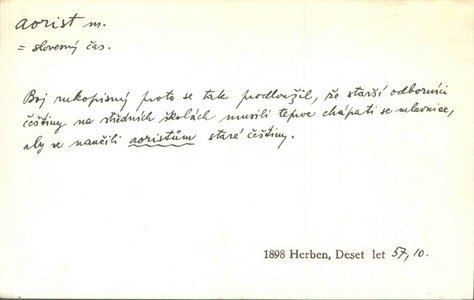 aorist m.
= slovesný čas.
Boj rukopisný proto se tak prodloužil, že starší odborníci
češtiny na středních školách musili teprve chápati se mluvnice,
aby se naučili aoristům staré češtiny.
1898 Herben, Deset let 57, 10.